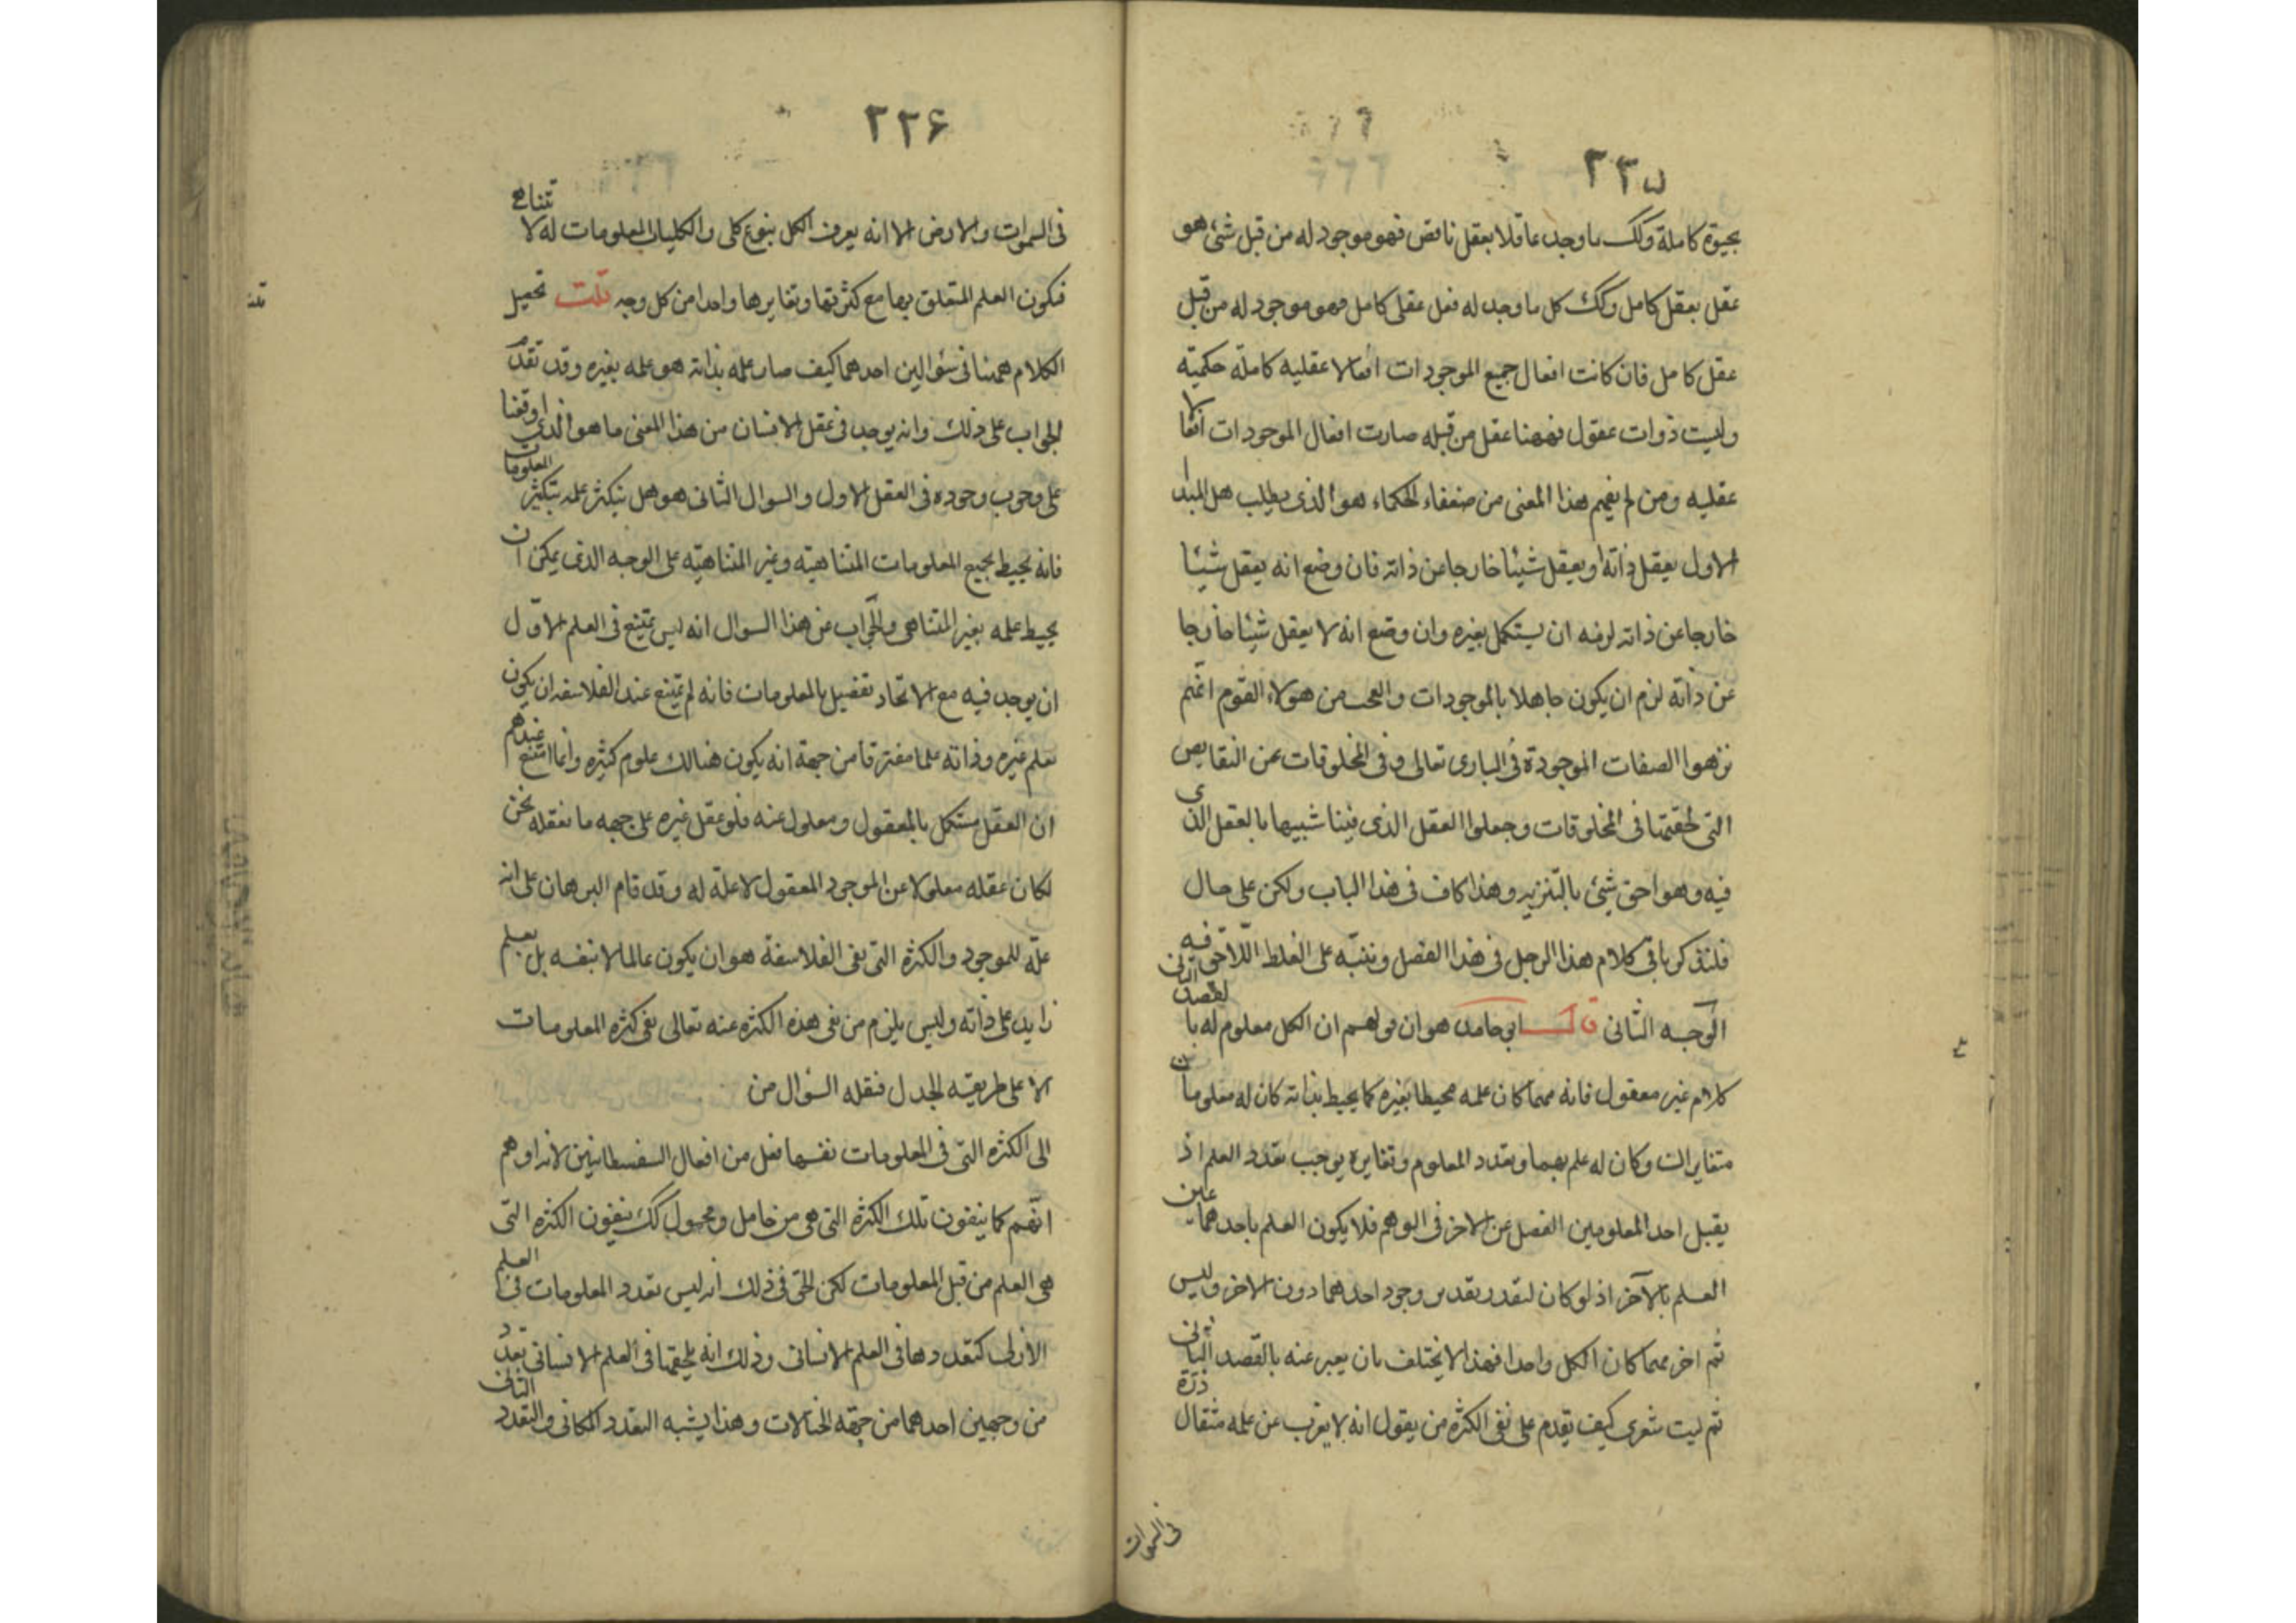 ٢٣٥
بحيوة كاملة وكك ما وجد عاقلا بعقل ناقص فهو موجود له من قبل شئ هو
عقل بعقل كامل وكك كل ما وجد له فعل عقلى كامل فهو موجود له من قبل
عقل كامل فان كانت افعال جميع الموجودات افعالا عقليه كاملة حكميّة
وليست ذوات عقول فههنا عقل من قبله صارت افعال الموجودات افعالا
عقليه ومن لم يفهم هذا المعنى من ضعفاء الحكماء هو الذى يطلب هل المبدا
الاول يعقل ذاته او يعقل شيئا خارجا عن ذاته فان وضع انه يعقل شيئا
خارجا عن ذاته لزمه ان يستكمل بغيره وان وضع انه لا يعقل شيئا خارجا
عن ذاته لزم ان يكون جاهلا بالموجودات والعجب من هولاء القوم انهم
نزهوا الصفات الموجودة فى البارى تعالى وفى المخلوقات عن النقايص
التى لحقتها فى المخلوقات وجعلوا العقل الذى فينا شبيها بالعقل الذى
فيه وهو احق شئ بالتنزيه وهذا كاف فى هذا الباب ولكن على حال
فلنذكر باقى كلام هذا الرجل فى هذا الفصل وننبّه على الغلط اللاحق فيه
الوجه الثانى قال ابو حامد هو ان قولهم ان الكل معلوم له بالقصد الثانى
كلام غير معقول فانه مهما كان علمه محيطا بغيره كما يحيط بذاته كان له معلومان
متغايران وكان له علم بهما وتعدد المعلوم وتغايره يوجب تعدد العلم اذ
يقبل احد المعلومين الفصل عن الاخر فى الوهم فلا يكون العلم باحدهما عين
العلم بالآخر اذ لو كان لتعذر تقدير وجود احدهما دون الاخر وليس
ثم اخر مهما كان الكل واحدا فهذا لا يختلف بان يعبر عنه بالقصد الثانى
ثم ليت شعرى كيف يقدم على نفى الكثرة من يقول انه لا يعزب عن علمه مثقال ذرّة
فى السموات
٢٢۶
فى السموات والارض الا انه يعرف الكل بنوع كلى والكليات المعلومات له لا تتناهى
فيكون العلم المتعلق بها مع كثرتها وتغايرها واحدا من كل وجه قلت تحصيل
الكلام ههنا فى سئوالين احدهما كيف صار علمه بذاته هو علمه بغيره وقد تقدّم
الجواب على ذلك وانه يوجد فى عقل الانسان من هذا المعنى ما هو الذى اوقفنا
على وجوب وجوده فى العقل الاول والسوال الثانى هو هل يتكثر علمه بتكثر المعلومات
فانه يحيط بجميع المعلومات المتناهيّه وغير المتناهيّه على الوجه الذى يمكن ان
يحيط علمه بغير المتناهى والجواب عن هذا السوال انه ليس يمتنع فى العلم الاوّل
ان يوجد فيه مع الاتحاد تفصيل بالمعلومات فانه لم يمتنع عند الفلاسفه ان يكون
يعلم غيره وذاته علما مفترقا من جهة انه يكون هنالك علوم كثيره وانما امتنع عندهم
ان العقل مستكمل بالمعقول ومعلول عنه فلو عقل غيره على جهه ما نعقله نحن
لكان عقله معلولا عن الموجود المعقول لا علة له وقد قام البرهان على انه
علّه للموجود والكثرة التى نفى الفلاسفة هو ان يكون عالما لا بنفسه بل بعلم
زايد على ذاته وليس يلزم من نفى هذه الكثره عنه تعالى نفى كثرة المعلومات
الا على طريقه الجدل فنقله السؤال من
الى الكثره التى فى المعلومات نفسها فعل من افعال السفسطانيين لانه اوهم
انهم كما ينفون تلك الكثرة التى هى من حامل ومحمول كك ينفون الكثره التى
هى العلم من قبل المعلومات لكن الحق فى ذلك انه ليس تعدد المعلومات فى العلم
الازلى كتعددها فى العلم الانسانى وذلك انه يلحقها فى العلم الانسانى تعدد
من وجهين احدهما من جهة الخيالات وهذا يشبه التعدد المكانى والتعدد الثانى